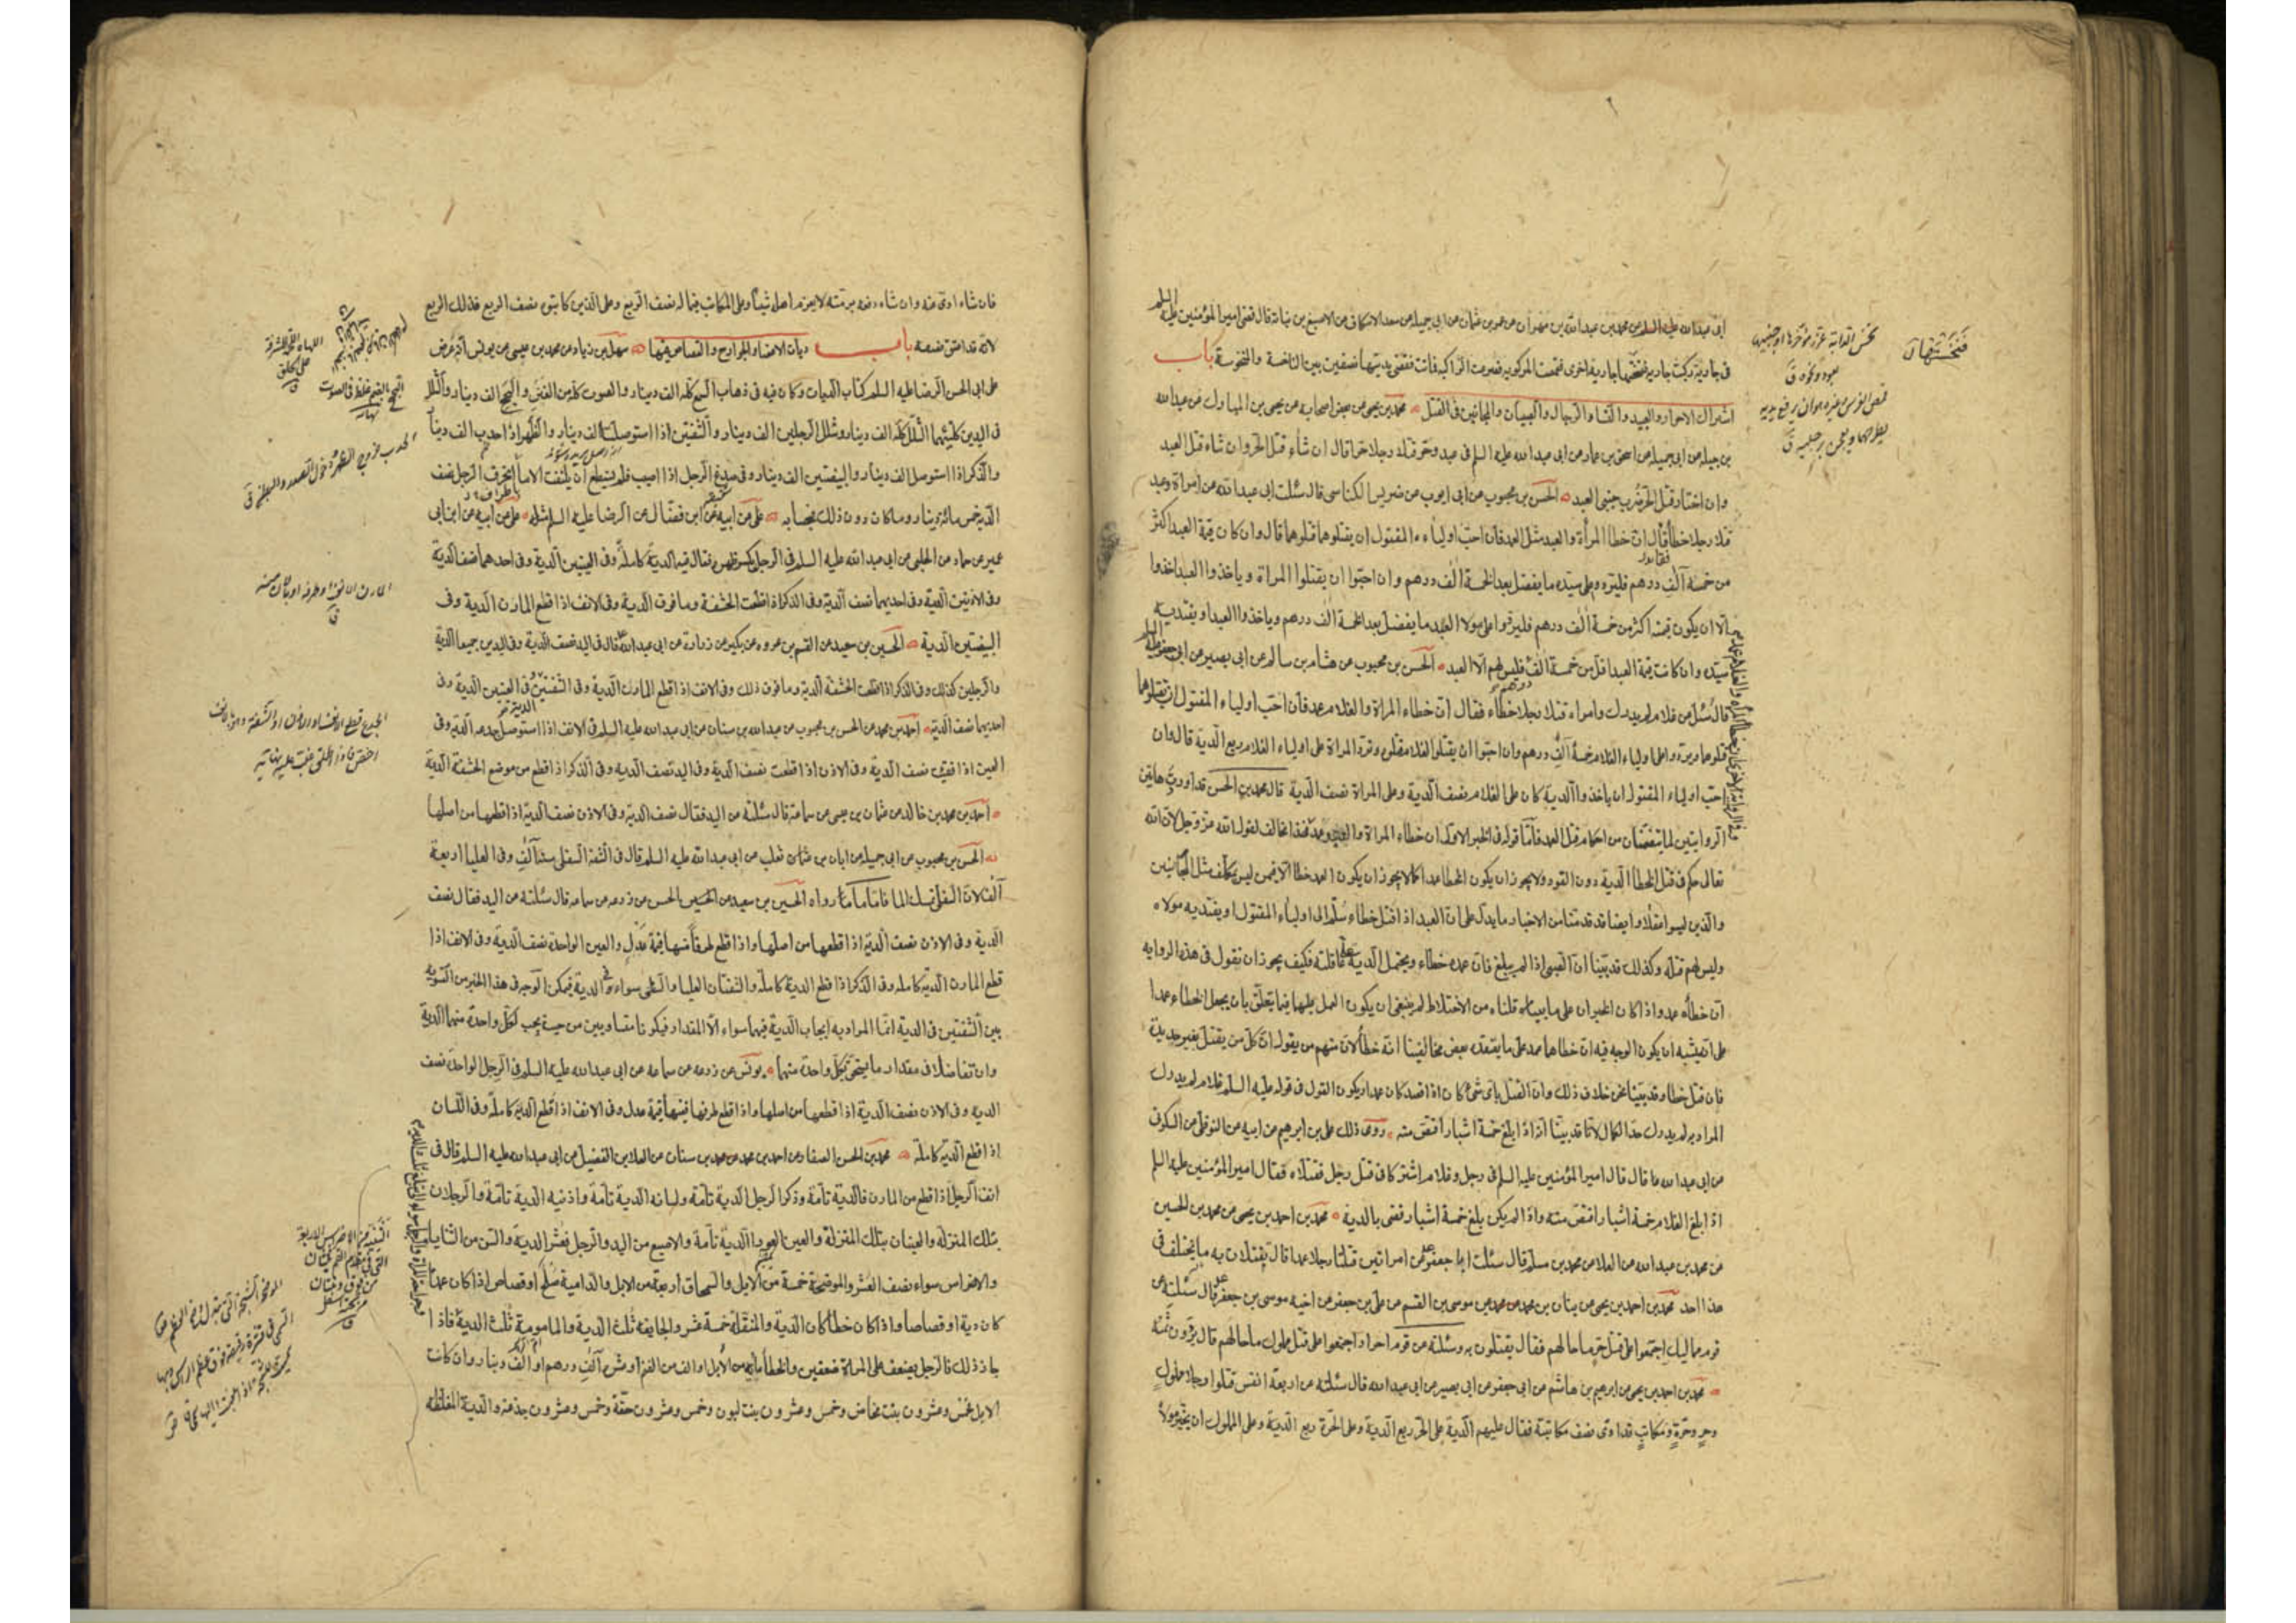 ابى عبد الله عليه السلم عن محمد بن عبد الله بن مهران عن عمرو بن عثمان عن ابى جميله عن سعد الاسكاف عن الاصبغ بن نباتة قال قضى امير المؤمنين عليه السلم
فى جارية ركبت جارية فنخستها جارية اخرى فقمصت المركوبة فصرعت الراكبة فماتت فقضى بديتها نصفين بين الناخسة والمنخوسة باب
اشتراك الاحرار والعبيد والنساء والرجال والصبيان والمجانين فى القتل محمد بن يحيى عن بعض اصحابه عن يحيى بن المبارك عن عبد الله
بن جبله عن ابى جميله عن اسحق بن عمار عن ابى عبد الله عليه السلم فى عبد وحر قتلا رجلا حرا قال ان شاء قتل الحر وان شاء قتل العبد
وان اختار قتل الحر ضرب جنبى العبد الحسن بن محبوب عن ابى ايوب عن ضريس الكناسى قال سئلت ابى عبد الله عن امراة وعبد
قتلا رجلا خطأ فقال ان خطا المرأة والعبد مثل العمد فان احب اولياء المقتول ان يقتلوهما قتلوهما قال وان كان قيمة العبد اكثر
من خمسة آلف درهم فليردوا على سيده ما يفضل بعد الخمسة الف درهم وان احبوا ان يقتلوا المراة وياخذوا العبد اخذوا
الا ان يكون قيمته اكثر من خمسة الف درهم فليردوا على مولا العبد ما يفضل بعد الخمسة الف درهم وياخذوا العبد او يفتديه
سيده وان كانت قيمة العبد اقل من خمسة الف فليس لهم الا العبد الحسن بن محبوب عن هشام بن سالم عن ابى بصير عن ابى جعفر عليه السلم
قال سئل عن غلام لم يدرك وامراة قتلا رجلا خطاء فقال ان خطاء المراة والغلام عمد فان احب اولياء المقتول ان يقتلوهما
قتلوهما ويردوا على اولياء الغلام خمسة آلف درهم وان احبوا ان يقتلوا الغلام قتلوه وترد المراة على اولياء الغلام ربع الدية قال وان
احب اولياء المقتول ان ياخذوا الدية كان على الغلام نصف الدية وعلى المراة نصف الدية قال محمد بن الحسن قد اوردت هاتين
الروايتين لما يتضمنان من احكام قتل العمد فاما قوله فى الخبر الاول ان خطاء المراة والعبد عمد فهذا مخالف لقول الله عز وجل لان الله
تعالى حكم فى قتل الخطا الدية دون القود ولا يجوز ان يكون الخطا عمدا كما لا يجوز ان يكون العمد خطا الا فيمن ليس بمكلف مثل المجانين
والذين ليسوا عقلا وايضا قد قدمنا من الاخبار ما يدل على ان العبد اذا قتل خطاء سلم الى اولياء المقتول او يفتديه مولاه
وليس لهم قتله وكذلك قد بينا ان الصبى اذا لم يبلغ فان عمده خطاء ويحتمل الدية على عاقلته فكيف يجوز ان نقول فى هذه الروايه
ان خطأه عمد واذا كان الخبران على ما بيناه قلناه من الاختلاط لم ينبغى ان يكون العمل عليهما فيما يتعلق بان يجعل الخطاء عمدا
على انه يشبه ان يكون الوجه فيه ان خطاهما عمد على ما يعتقده بعض مخالفينا انه خطأ لان منهم من يقول ان كل من يقتل بغير حديدة
فان قتل خطا وقد بينا نحن خلاف ذلك وان القتل باى شئ كان اذا قصد كان عمدا ويكون القول فى قوله عليه السلم غلام لم يدرك
المراد به لم يدرك حد الكمال لانا قد بينا انه اذا بلغ خمسة اشبار اقتص منه روى ذلك على بن ابرهيم عن ابيه عن النوفلى عن السكونى
عن ابى عبد الله ع قال قال امير المؤمنين عليه السلم فى رجل وغلام اشتركا فى قتل رجل فقتلاه فقال امير المؤمنين عليه السلم
اذا بلغ الغلام خمسة اشبار اقتص منه واذا لم يكن بلغ خمسة اشبار فقضى بالدية محمد بن احمد بن يحيى عن محمد بن الحسين
عن محمد بن عبد الله عن العلا عن محمد بن مسلم قال سئلت ابا جعفر عن امراتين قتلتا رجلا عمدا قال يقتلان به ما يختلف فى
هذا احد محمد بن احمد بن يحيى عن بنان بن محمد عن موسى بن القسم عن على بن جعفر عن اخيه موسى بن جعفر قال سئلته عن
قوم مماليك اجتمعوا على قتل حر ما حالهم فقال يقتلون به وسئلته عن قوم احرار اجتمعوا على قتل مملوك ما حالهم قال يردون ثمنه
محمد بن احمد بن يحيى عن ابرهيم بن هاشم عن ابى جعفر عن ابى بصير عن ابى عبد الله قال سئلته عن اربعة انفس قتلوا رجلا مملوك
وحر وحرة ومكاتب قد ادى نصف مكاتبته فقال عليهم الدية على الحر ربع الدية وعلى الحرة ربع الدية وعلى المملوك ان يخير مولاه
فان شاء ادى عنه وان شاء دفعه برمته لا يغرم اهله شيئا وعلى المكاتب فى ماله نصف الربع وعلى الذين كاتبوه نصف الربع فذلك الربع
لانه قد اعتق نصفه باب ديات الاعضاء والجوارح والقصاص فيها سهل بن زياد عن محمد بن عيسى عن يونس انه عرض
على ابى الحسن الرضا عليه السلم كتاب الديات وكان فيه فى ذهاب السمع كله الف دينار والصوت كله من الغنن والبحح الف دينار والشلل
فى اليدين كلتيهما الشلل كله الف دينار وشلل الرجلين الف دينار والشفتين اذا استوصلتا الف دينار والظهر اذا احدب الف دينار
والذكر اذا استوصل الف دينار والبيضتين الف دينار وفى صدغ الرجل اذا اصيب فلم يستطع ان يلتفت الا ما انحرف الرجل نصف
الدية خمس مائة دينار وما كان دون ذلك فبحسابه على عن ابيه عن ابن فضال عن الرضا عليه السلم مثله على عن ابيه عن ابن ابى
عمير عن حماد عن الحلبى عن ابى عبد الله عليه السلم فى الرجل يكسر ظهره فقال فيه الدية كاملة وفى العينين الدية وفى احدهما نصف الدية
وفى الاذنين الدية وفى احديهما نصف الدية وفى الذكر اذا قطعت الحشفة وما فوق الدية وفى الانف اذا قطع المارن الدية وفى
البيضتين الدية الحسين بن سعيد عن القسم بن عروه عن بكير عن زرارة عن ابى عبد الله قال فى اليد نصف الدية وفى اليدين جميعا الدية
والرجلين كذلك وفى الذكر اذا قطعت الحشفة الدية وما فوق ذلك وفى الانف اذا قطع المارن الدية وفى الشفتين وفى العينين الدية وفى
احديهما نصف الدية احمد بن محمد عن الحسن بن محبوب عن عبد الله بن سنان عن ابى عبد الله عليه السلم فى الانف اذا استوصل جدعه الدية وفى
العين اذا فقئت نصف الدية وفى الاذن اذا قطعت نصف الدية وفى اليد نصف الدية وفى الذكر اذا قطع من موضع الحشفة الدية
احمد بن محمد بن خالد عن عثمان بن عيسى عن سماعة قال سئلته عن اليد فقال نصف الدية وفى الاذن نصف الدية اذا قطعها من اصلها
الحسن بن محبوب عن ابى جميله عن ابان بن تغلب عن ابى عبد الله عليه السلم قال فى الشفة السفلى ستة آلف وفى العليا اربعة
آلف لان السفلى تمسك الماء فاما ما رواه الحسين بن سعيد عن الحسن عن زرعه عن سماعه قال سئلته عن اليد فقال نصف
الدية وفى الاذن نصف الدية اذا قطعها من اصلها واذا قطع طرفا منها قيمة عدل والعين الواحدة نصف الدية وفى الانف اذا
قطع المارن الدية كامله وفى الذكر اذا قطع الدية كاملة والشفتان العليا والسفلى سواء فى الدية فيمكن الوجه فى هذا الخبر من التسوية
بين الشفتين فى الدية انما المراد به ايجاب الدية فيهما سواء لا المقدار فيكونا متساويين من حيث يجب لكل واحدة منهما الدية
وان تفاضلا فى مقدار ما يستحق بكل واحدة منهما يونس عن زرعه عن سماعه عن ابى عبد الله عليه السلم فى الرجل الواحدة نصف
الدية وفى الاذن نصف الدية اذا قطعها من اصلها واذا قطع طرفها ففيها قيمة عدل وفى الانف اذا قطع الدية كاملة وفى اللسان
اذا قطع الدية كاملة محمد بن الحسن الصفار عن احمد بن محمد عن محمد بن سنان عن العلا بن الفضيل عن ابى عبد الله عليه السلم قال فى
انف الرجل اذا قطع من المارن فالدية تامة وذكر الرجل الدية تامة ولسانه الدية تامة واذنيه الدية تامة والرجلان
بتلك المنزلة والعينان بتلك المنزلة والعين العوراء الدية تامة والاصبع من اليد والرجل فعشر الدية والسن من الثنايا
والاضراس سواء نصف العشر والموضحة خمسة من الابل والسمحاق اربعة من الابل والدامية صلح او قصاص اذا كان عمدا
كان دية او قصاصا واذا كان خطأ كان الدية والمنقلة خمسة عشر والجايفه ثلث الدية والمامومة ثلث الدية فاذا
جاز ذلك فالرجل يضعف على المراة ضعفين والخطأ مأيه من الابل او الف من الغنم او عشرة آلف درهم او الف دينار وان كانت
الابل فخمس وعشرون بنت مخاض وخمس وعشرون بنت لبون وخمس وعشرون حقة وخمس وعشرون جذعة والدية المغلظه